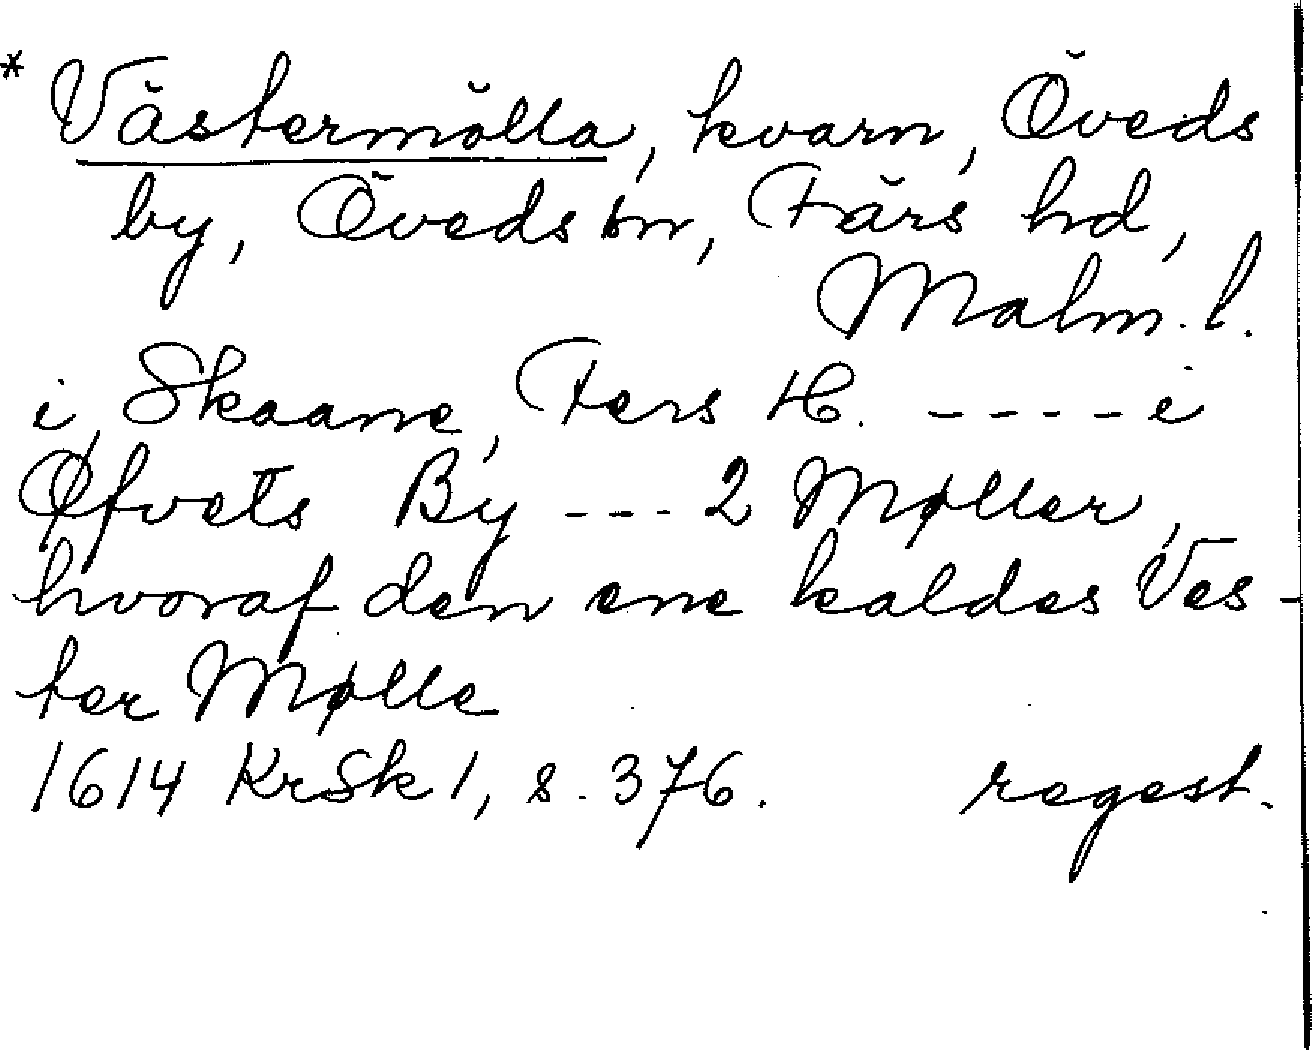 * Västermölla, kvarn, Öveds
by, Öveds sn, Färs hd,
Malm. l.
i Skaane, Fers H. ---- i
Øfvets By --- 2 Møller,
hvoraf den ene kaldes Ves-
ter Mølle
1614 KrSk 1, s. 376. regest.